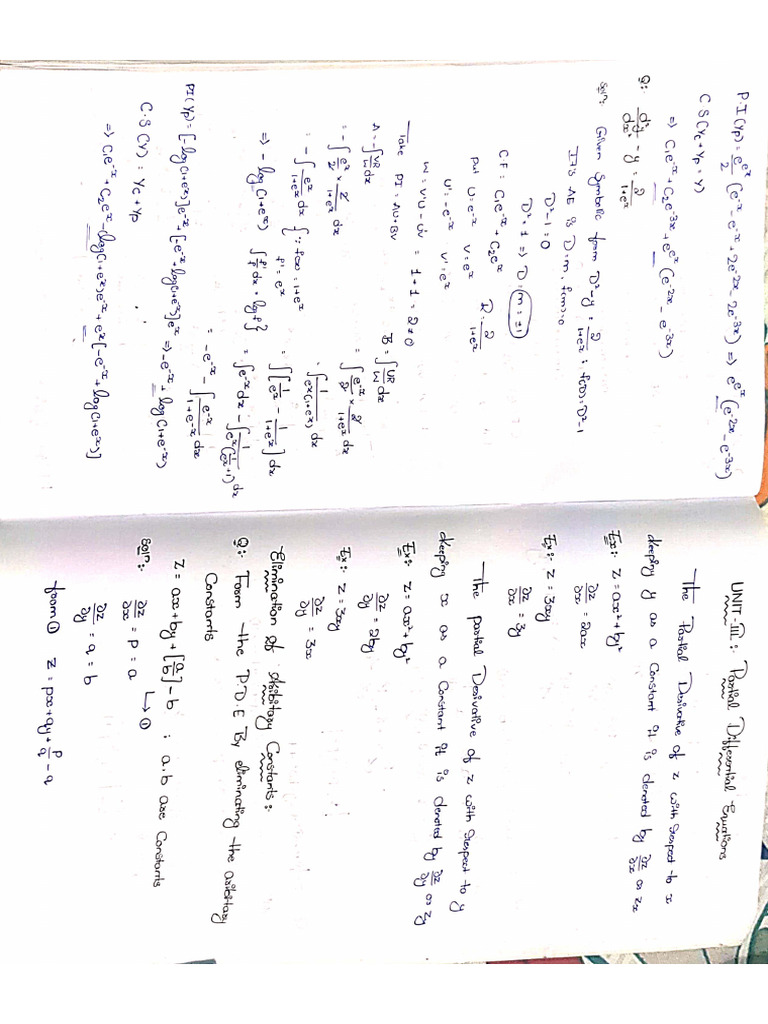 P.I(yp) = e^e^x/2 (e^-x - e^-x + 2e^-2x 2e^-3x) ⇒ e^e^x (e^-2x - e^-3x)
C.S(yc + yp = y)
⇒ C1e^-x + C2e^-3x + e^e^x (e^-2x - e^-3x)
Q: d²y/dx² - y = 2/(1+e^x)
Soln: Given Symbolic form D² - y = 2/(1+e^x) : f(D) = D² - 1
It's AE is D = m, f(m) = 0
D² - 1 = 0
D² = 1 ⇒ D = (m = ±1)
C.F = C1e^-x + C2e^x R = 2/(1+e^x)
put U = e^-x V = e^x
U' = -e^-x V' = e^x
W = V'U - U'V = 1 + 1 = 2 ≠ 0
Take PI = AU + BV
A = -∫ VR/W dx
= -∫ e^x/2 × 2/(1+e^x) dx
= -∫ e^x/(1+e^x) dx {∵ f(x) = 1+e^x
f' = e^x
⇒ -log(1+e^x) ∫ f'/f dx = log f}
B = ∫ UR/W dx
= ∫ e^-x/2 × 2/(1+e^x) dx
= ∫ 1/(e^x(1+e^x)) dx
= ∫ [1/e^x - 1/(1+e^x)] dx
= ∫ e^-x dx - ∫ 1/(e^x(1/e^x + 1)) dx
= -e^-x - ∫ e^-x/(1+e^-x) dx
PI(yp) = [-log(1+e^x)]e^-x + [-e^-x + log(1+e^-x)]e^x ⇒ -e^-x + log(1+e^-x)
C.S(y) = yc + yp
⇒ C1e^-x + C2e^x - (log(1+e^x)e^-x + e^x[-e^-x + log(1+e^-x)]
UNIT-III : Partial Differential Equations
The Partial Derivative of z with respect to x
keeping y as a Constant it is denoted by ∂z/∂x or zx
Ex: z = ax² + by²
∂z/∂x = 2ax
Ex: z = 3xy
∂z/∂x = 3y
The partial Derivative of z with respect to y
keeping x as a Constant it is denoted by ∂z/∂y or zy
Ex: z = ax² + by²
∂z/∂y = 2by
Ex: z = 3xy
∂z/∂y = 3x
Elimination of Arbitary Constants:
Q: Form the P.D.E By eliminating the arbitary
Constants
z = ax + by + [a/b] - b ; a.b are Constants
↳ ①
Soln: ∂z/∂x = p = a
∂z/∂y = q = b
from ① z = px + qy + p/q - q